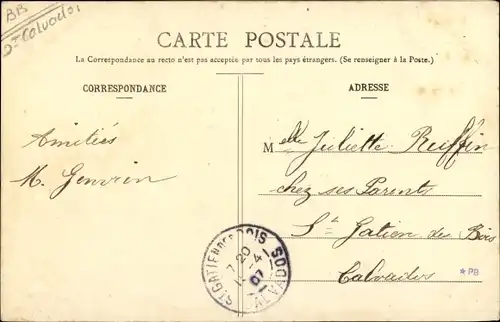 BB
Calvados
CARTE POSTALE
La Correspondance au recto n'est pas acceptée par tous les pays étrangers. (Se renseigner à la Poste.)
CORRESPONDANCE
ADRESSE
Amitiés
M.
Melle Juliette Ruffin
chez ses Parents
St Gatien des Bois
Calvados
*PB
ST GATIEN DES BOIS
7 20
-4
07
CALVADOS